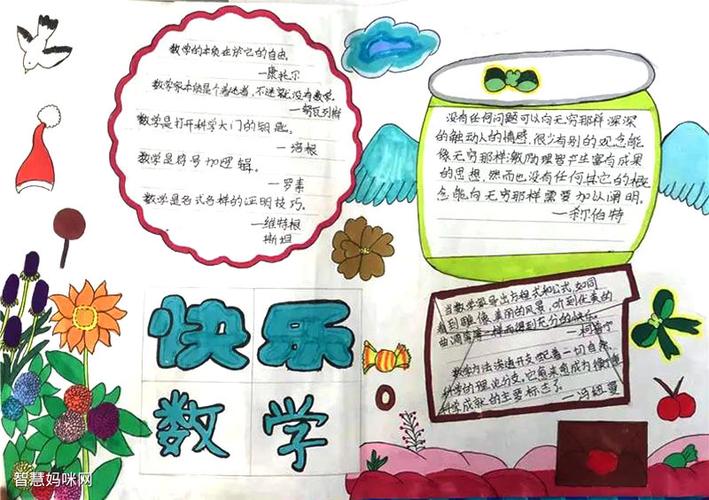 数学的本质在於它的自由
—康托尔
数学家本质是个着迷者,不迷就没有数学。
—努瓦列斯
数学是打开科学大门的钥匙。
—培根
数学是符号加逻辑。
—罗素
数学是各式各样的证明技巧。
—维特根
斯坦
没有任何问题可以向无穷那样深深
的触动人的情感,很少有别的观念能
像无穷那样激励理智产生富有成果
的思想,然而也没有任何其它的概
念能向无穷那样需要加以阐明。
—希尔伯特
当数学家导出方程式和公式,如同
看到雕像、美丽的风景,听到优美的
曲调等等一样而得到充分的快乐。
—柯普宁
数学方法渗透并支配着一切自然
科学的理论分支。它愈来愈成为衡量
科学成就的主要标志了。
—冯纽曼
快乐
数学
智慧妈咪网